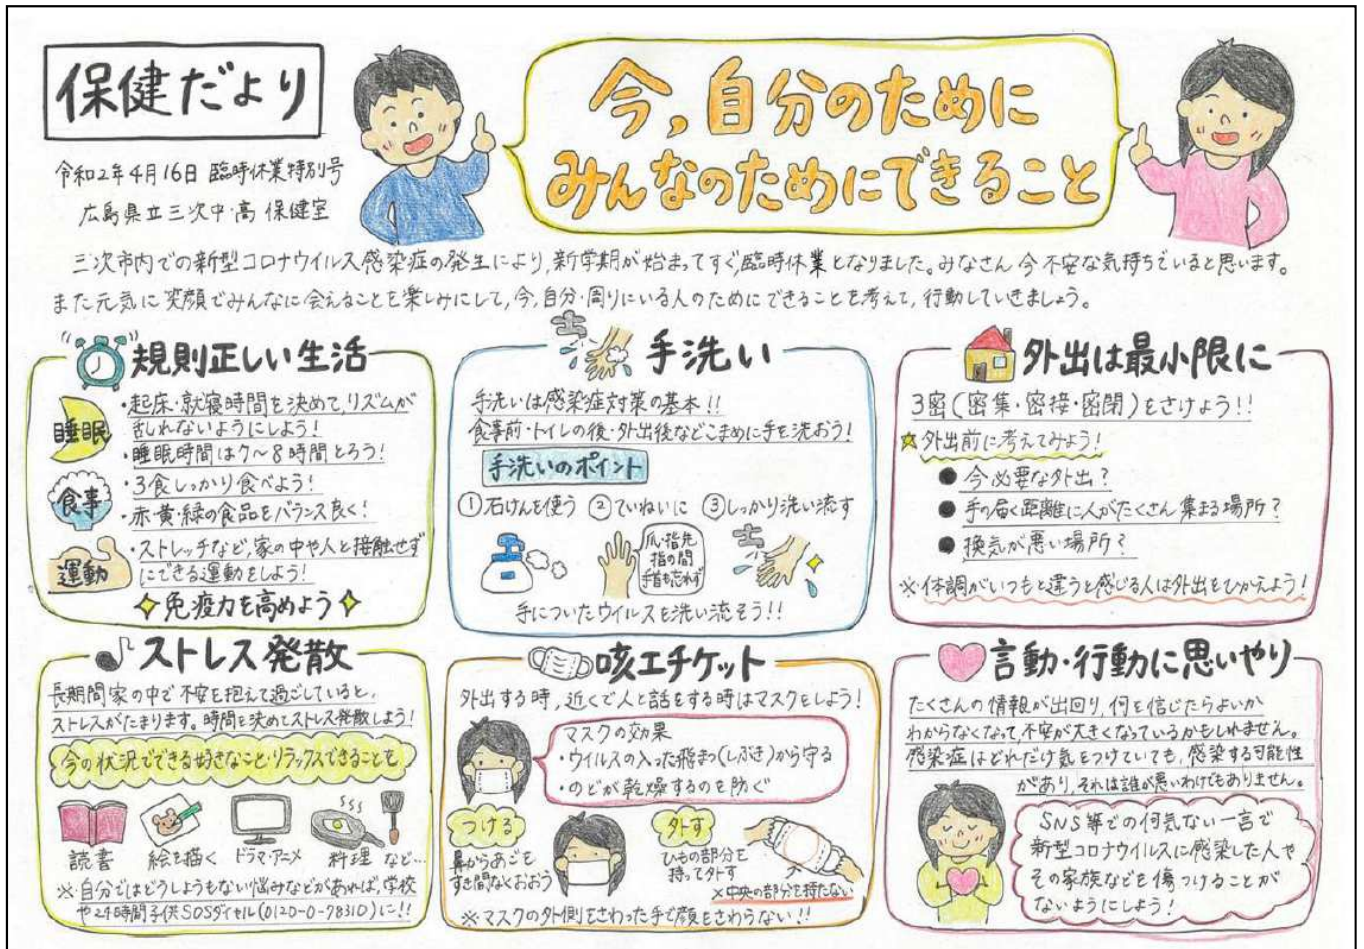 保健だより
令和2年4月16日 臨時休業特別号
広島県立三次中・高 保健室
今,自分のために
みんなのためにできること
三次市内での新型コロナウイルス感染症の発生により,新学期が始まってすぐ,臨時休業となりました。みなさん 今 不安な気持ちでいると思います。
また元気に笑顔でみんなに会えることを楽しみにして,今,自分・周りにいる人のためにできることを考えて,行動していきましょう。
規則正しい生活
睡眠
・起床・就寝時間を決めて,リズムが
乱れないようにしよう!
・睡眠時間は7〜8時間とろう!
食事
・3食しっかり食べよう!
・赤・黄・緑の食品をバランス良く!
運動
・ストレッチなど,家の中や人と接触せず
にできる運動をしよう!
免疫力を高めよう
手洗い
手洗いは感染症対策の基本!!
食事前・トイレの後・外出後などこまめに手を洗おう!
手洗いのポイント
①石けんを使う ②ていねいに ③しっかり洗い流す
爪・指先
指の間
手首も忘れず
手についたウイルスを洗い流そう!!
外出は最小限に
3密(密集・密接・密閉)をさけよう!!
☆外出前に考えてみよう!
● 今必要な外出?
● 手の届く距離に人がたくさん集まる場所?
● 換気が悪い場所?
※体調がいつもと違うと感じる人は外出をひかえよう!
ストレス発散
長期間家の中で不安を抱えて過ごしていると,
ストレスがたまります。時間を決めてストレス発散しよう!
今の状況でできる好きなこと・リラックスできることを
読書 絵を描く ドラマ・アニメ 料理 など…
※自分ではどうしようもない悩みなどがあれば,学校
や24時間子供SOSダイヤル(0120-0-78310)に!!
咳エチケット
外出する時,近くで人と話をする時はマスクをしよう!
マスクの効果
・ウイルスの入った飛まつ(しぶき)から守る
・のどが乾燥するのを防ぐ
つける
鼻からあごを
すき間なくおおう
外す
ひもの部分を
持って外す
×中央の部分を持たない
※マスクの外側をさわった手で顔をさわらない!!
言動・行動に思いやり
たくさんの情報が出回り,何を信じたらよいか
わからなくなって,不安が大きくなっているかもしれません。
感染症はどれだけ気をつけていても,感染する可能性
があり,それは誰が悪いわけでもありません。
SNS等での何気ない一言で
新型コロナウイルスに感染した人や
その家族などを傷つけることが
ないようにしよう!